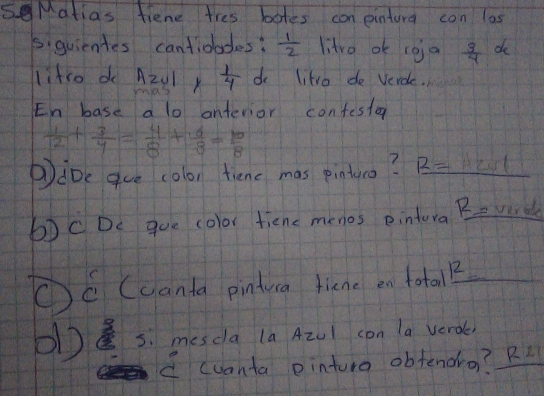 5.- Matias tiene tres botes con pintura con las
siguientes cantidades: 1/2 litro de roja 3/4 de
litro de Azul y 1/4 de litro de verde.
mas
En base a lo anterior contesta
1/2 + 3/4 = 4/8 + 6/8 = 10/8
a) ¿De que color tiene mas pintura? R= Azul
b) ¿De que color tiene menos pintura R= verde
c) ¿Cuanta pintura tiene en total R
d) si mescla la Azul con la verde,
¿cuanta pintura obtendra? R